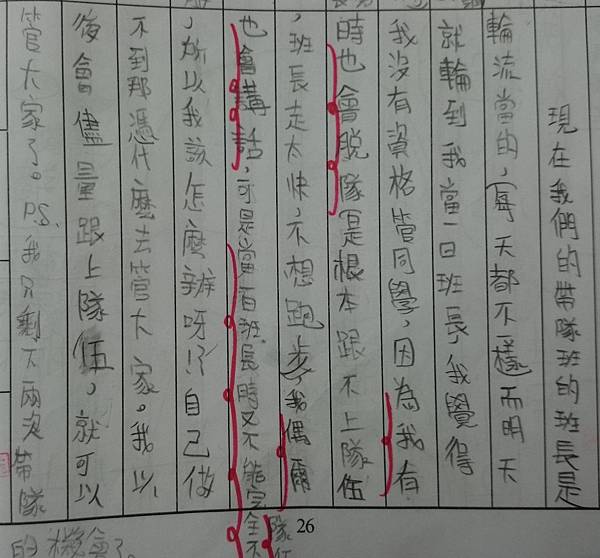 現在我們的帶隊班的班長是
輪流當的,每天都不一樣而明天
就輪到我當一日班長,我覺得
我沒有資格管同學,因為我有
時也會脫隊是根本跟不上隊伍
,班長走太快,不想跑步,我偶爾
也會講話,可是當一日班長時又不能完全不
,所以我該怎麼辦呀!?自己做
不到那憑什麼去管大家。我以
後會儘量跟上隊伍,就可以
管大家了。P.S.我只剩下兩次帶隊
的機會了。
隊伍
26